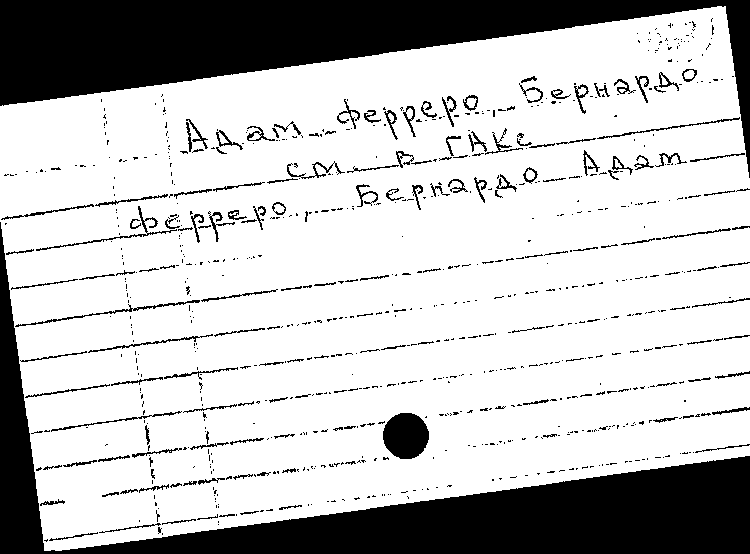 Адам Ферреро, Бернардо
см. в ГАКе
Ферреро, Бернардо Адам